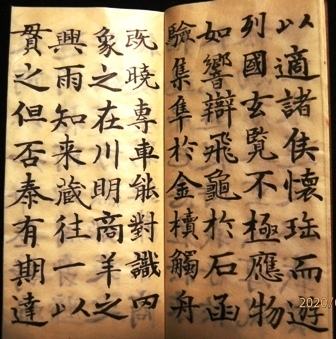 以適諸侯懷珤而遊
列國玄覽不極應物
如響辯飛龜於石函
驗集隼於金櫝觸舟
既曉專車能對識罔
象之在川明商羊之
興雨知来藏往一以
貫之但否泰有期達
2020/